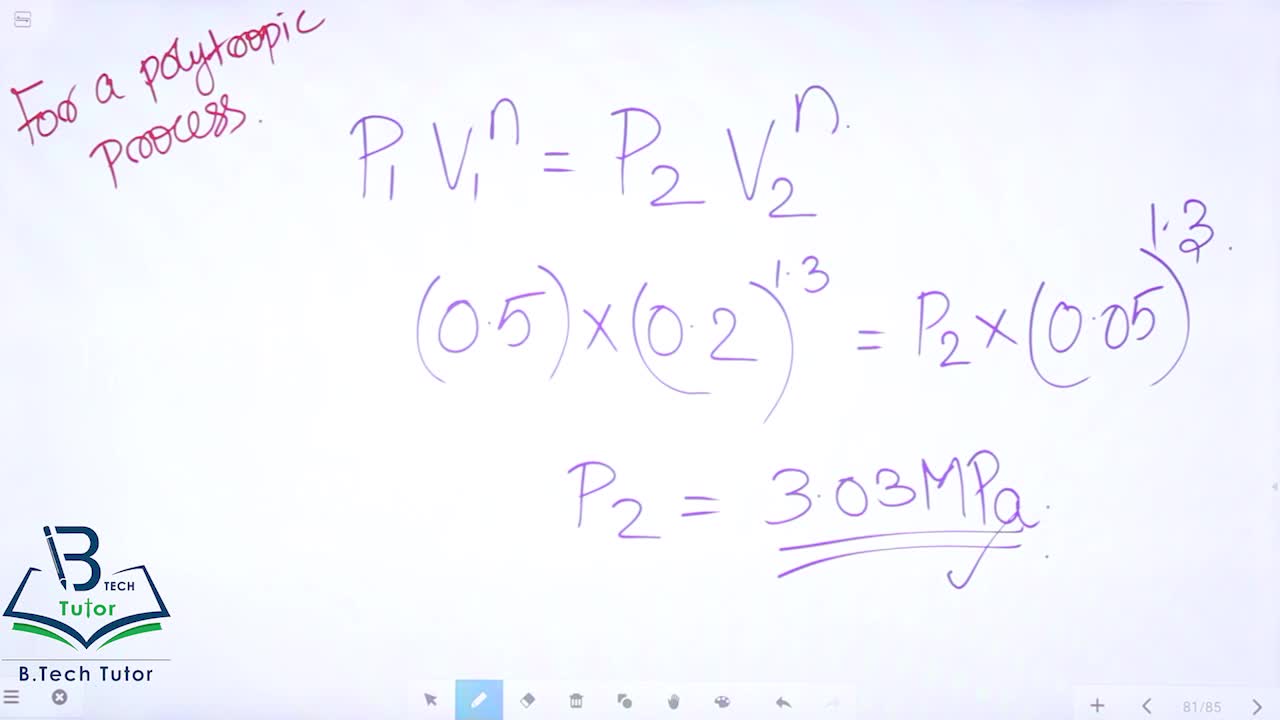 For a polytropic
process.
P₁ V₁ⁿ = P₂ V₂ⁿ.
(0.5) × (0.2)^1.3 = P₂ × (0.05)^1.3.
P₂ = 3.03 MPa.
B
TECH
Tutor
B.Tech Tutor
81/85